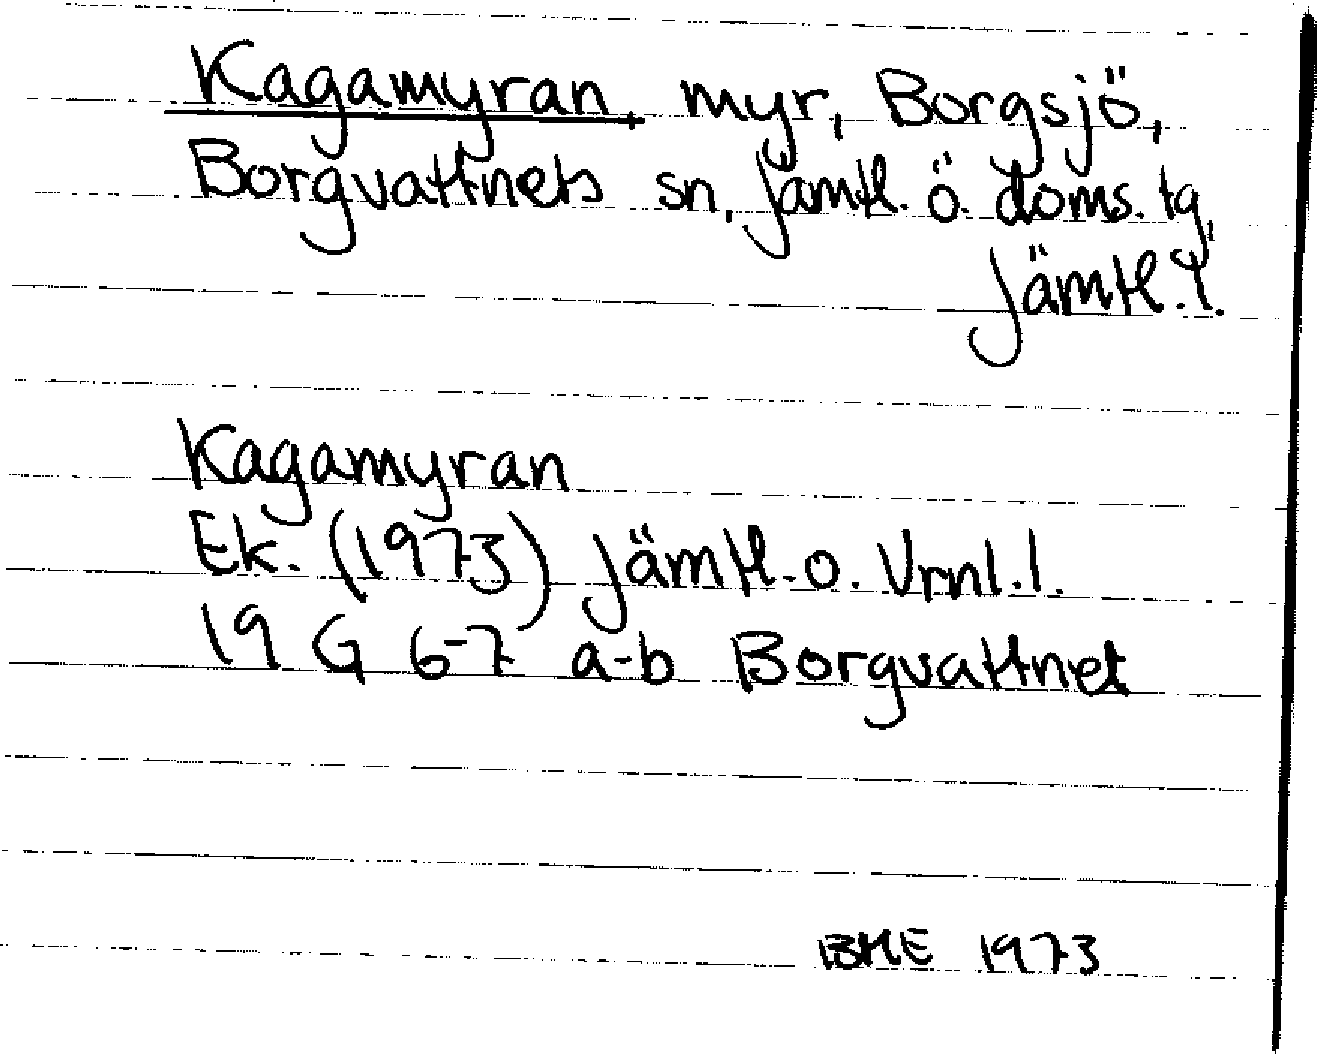 Kagamyran, myr, Borgsjö,
Borgvattnets sn, Jämtl. ö. doms. tg,
Jämtl. l.
Kagamyran
Ek. (1973) Jämtl. o. Vrnl. l.
19 G 6-7 a-b Borgvattnet
BME 1973